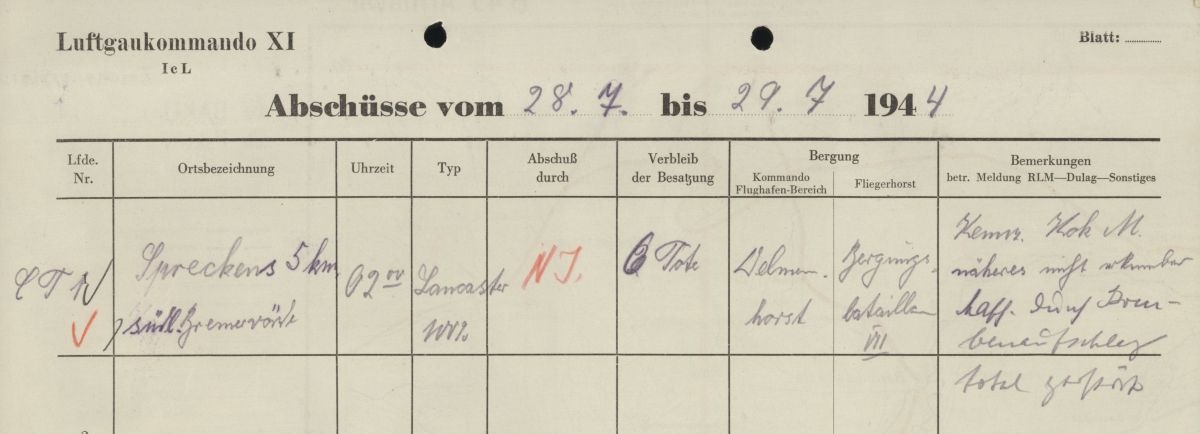 Luftgaukommando XI
Ie L
Blatt:
Abschüsse vom 28. 7. bis 29. 7 1944
Lfde. Nr.
Ortsbezeichnung
Uhrzeit
Typ
Abschuß durch
Verbleib der Besatzung
Bergung
Kommando Flughafen-Bereich
Fliegerhorst
Bemerkungen
betr. Meldung RLM—Dulag—Sonstiges
Spreckens 5 km
südl. Bremervörde
02 00
Lancaster
100%
NJ.
6 Tote
Delmen-
horst
Bergungs-
bataillon
VII
Kennz. M.
näheres nicht erkennbar
durch Bom-
benaufschlag
total zerstört